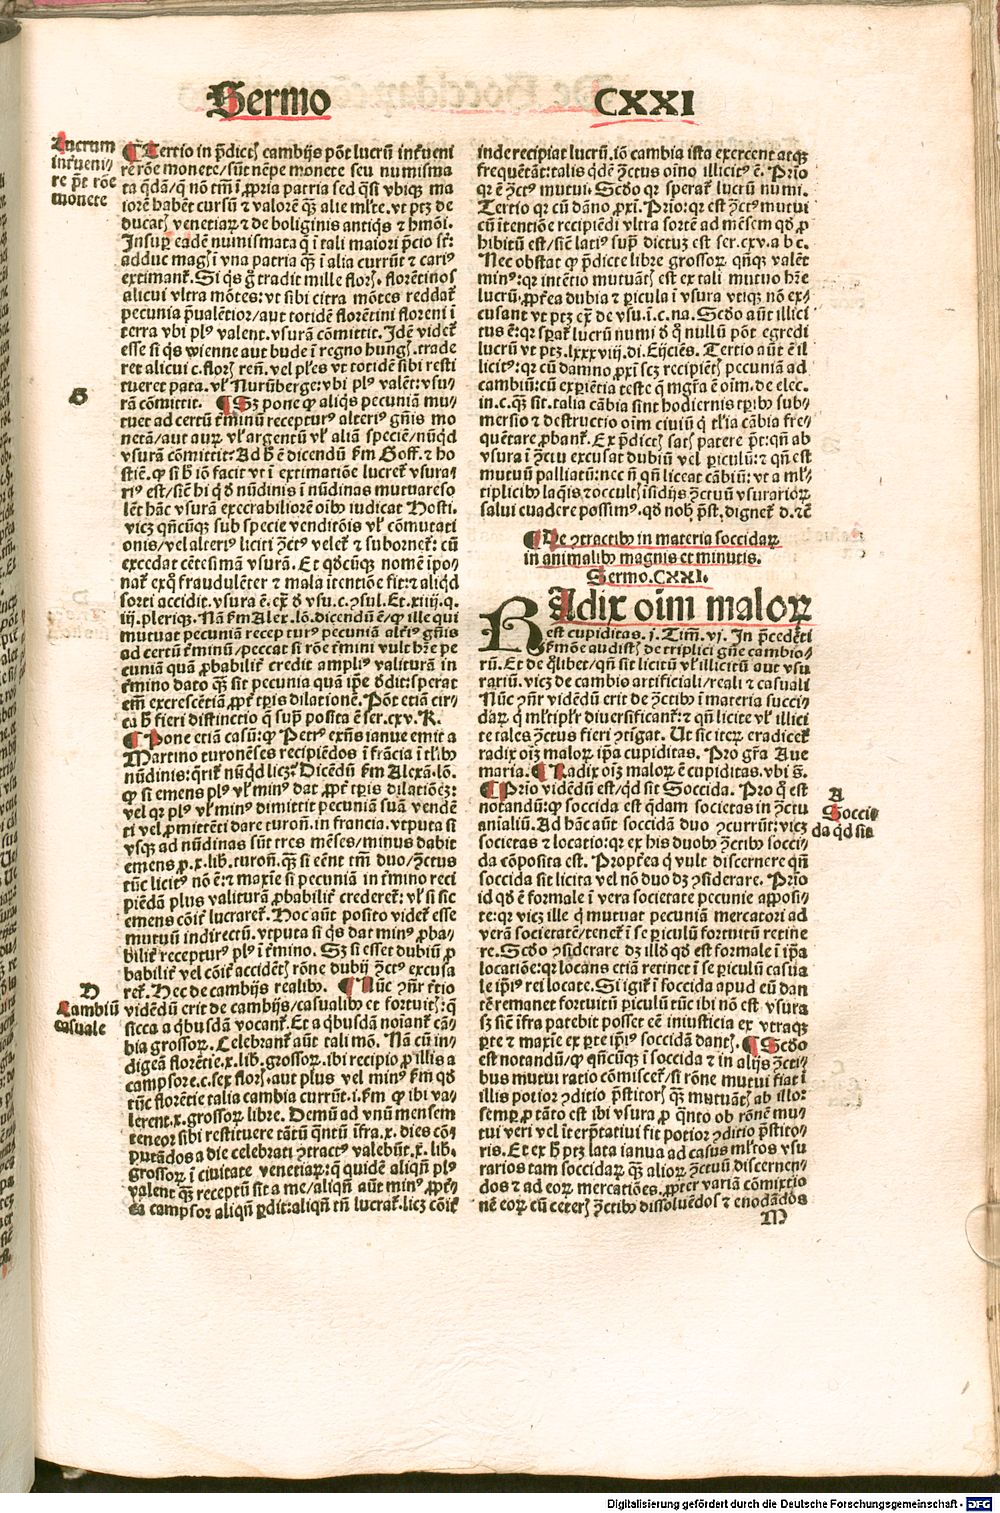 Sermo CXXI
Lucrum
intrueni-
re pt rõe
monete
¶ Tertio in p̃dictꝭ cambijs põt lucrũ intrueni
re rõe monete/sũt nẽpe monete seu numisma
ta q̃dã/q̃ nõ tm̃ ĩ ꝓpria patria sed q̃si vbiqꝫ ma
iorẽ habẽt cursũ ⁊ valorẽ qꝫ̃ alie ml̃te. vt ptꝫ de
ducatꝭ venetiaꝝ ⁊ de boliginis antiq̃s ⁊ hmõi.
Insuꝑ eadẽ numismata q̃ ĩ tali maiori p̃cio sũt
adduc magꝭ ĩ vna patria qꝫ̃ ĩ alia currũt ⁊ cariꝰ
extimant᷑. Si q̃s g̃ tradit mille florꝭ. florẽtinos
alicui vltra mõtes: vt sibi citra mõtes reddat᷑
pecunia p̃ualẽtior/aut totidẽ florẽtini floreni ĩ
terra vbi plꝰ valent. vsurã cõmittit. Idẽ videt᷑
esse si q̃s wienne aut bude ĩ regno hungꝭ. trade
ret alicui c. florꝭ reñ. vel pl̃es vt totidẽ sibi resti
tueret pata. vl᷑ Nurũberge: vbi plꝰ valẽt: vsu-
rã cõmittit. ¶ Sꝫ pone ꝙ aliq̃s pecuniã mu-
B
tuet ad certũ t̃minũ recepturꝰ alteriꝰ gñis mo
netã/aut auꝝ vl᷑ argentũ vl᷑ aliã speciẽ/nũqd
vsurã cõmittit: Ad h̃ ẽ dicendũ ẜm Goff. ⁊ ho
stiẽ. ꝙ si h̃ iõ facit vt ĩ extimatiõe lucret᷑ vsura-
riꝰ est/siẽ hi q̃ ð nũdinis ĩ nũdinas mutuare so
lẽt hãc vsurã execrabiliorẽ oĩbꝰ iudicat Hosti.
vicꝫ qñcũqꝫ sub specie venditõis vl᷑ cõmutati
onis/vel alteriꝰ liciti ꝯctꝰ velet᷑ ⁊ subornet᷑: cũ
excedat cẽtesimã vsurã. Et qðcũqꝫ nomẽ ĩpo-
nat᷑ exq̃ fraudulẽter ⁊ mala ĩtentiõe fit: ⁊ aliqd
sorti accidit. vsura ẽ. ex̃ ð vsu. c. ꝯsul. Et. xiiij. q.
iij. pleriqꝫ. Nã ẜm Alex. lõ. dicendũ ẽ/ꝙ ille qui
mutuat pecuniã recepturꝰ pecuniã alt̃iꝰ gñis
ad certũ t̃minũ/peccat si rõe t̃mini vult h̃re pe
cuniã quã ꝓbabilit᷑ credit ampliꝰ valiturã in
t̃mino dato qꝫ̃ sit pecunia quã ip̃e ð dit: sperat
em̃ excrescẽtiã ꝓpt᷑ tp̃is dilationẽ. Põt etiã cir-
ca h̃ fieri distinctio q̃ supͣ posita ẽ ser. cxv. K.
¶ Pone etiã casũ: ꝙ Petrꝰ exñs ianue emit a
Martino turonẽses recipiẽdos ĩ frãcia ĩ tl̃ibꝰ
nũdinis: q̃rit᷑ nũqd liczꝫ Dicẽdũ ẜm Alexã. lõ.
ꝙ si emens plꝰ vl᷑ minꝰ dat ꝓpt᷑ tp̃is dilatiõeꝫ:
vel qꝛ plꝰ vl᷑ minꝰ dimittit pecuniã suã vendẽ
ti vel ꝓmittẽti dare turoñ. in francia. vtputa si
vsqꝫ ad nũdinas sũt tres mẽses/minus dabit
emens ꝓ. x. lib. turoñ. qꝫ̃ si eẽnt tm̃ duo/ꝯctus
tũc licitꝰ nõ ẽ: ⁊ maxĩe si pecuniã in t̃mino reci
piẽdã plus valiturã ꝓbabilit᷑ crederet᷑: vl᷑ si sic
emens cõit᷑ lucraret᷑. Hoc aũt posito videt᷑ esse
mutuũ indirectũ. vtputa si q̃s dat minꝰ ꝓba-
bilit᷑ recepturꝰ plꝰ ĩ t̃mino. Sꝫ si esset dubiũ ꝓ
babilit᷑ vel cõit᷑ accidẽtꝭ rõne dubij ꝯctꝰ excusa
ret᷑. Hec de cambijs realibꝰ. ¶ Nũc ꝯñr t̃tio
D
Cambiũ
casuale
vidẽdũ crit de cambijs/casualibꝰ et fortuitꝭ: q̃
sicca a q̃busdã vocant᷑. Et a q̃busdã noĩant᷑ cã-
bia grossoꝝ. Celebrant᷑ aũt tali mõ. Nã cũ in-
digeã florẽtie. x. lib. grossoꝝ. ibi recipio ꝓ illis a
campsore. c. sex florꝭ. aut plus vel minꝰ ẜm qð
tũc florẽtie talia cambia currũt. i. ẜm ꝙ ibi va-
lerent. x. grossoꝝ libre. Demũ ad vnũ mensem
teneor sibi restituere tãtũ q̃ntũ ĩfra. x. dies cõ-
putãdos a die celebrati ꝯtractꝰ valebũt. x. lib.
grossoꝝ ĩ ciuitate venetiaꝝ: q̃ quidẽ aliqñ plꝰ
valent qꝫ̃ receptũ sit a me/aliqñ aũt minꝰ. ꝓpt̃-
ea campsor aliqñ ꝑdit: aliqñ tñ lucrat᷑. licꝫ cõit᷑
inde recipiat lucrũ. iõ cambia ista exercent atqꝫ
frequẽtãt: talis q̃dẽ ꝯctus oĩno illicitꝰ ẽ. Prĩo
qꝛ ẽ ꝯctꝰ mutui. Scðo qꝛ sperat᷑ lucrũ nu mi.
Tertio qꝛ cũ dãno ꝓxĩ. Prĩo: qꝛ est ꝯctꝰ mutui
cũ ĩtentiõe recipiẽdi vltra sortẽ ad mẽsem qð ꝓ
hibitũ est/siẽ latiꝰ supͣ dictuꝫ est ser. cxv. a b c.
Nec obstat ꝙ p̃dicte libre grossoꝝ qñqꝫ valẽt
minꝰ: qꝛ intẽtio mutuãtꝭ est ex tali mutuo h̃re
lucrũ. ꝓpt̃ea dubia ⁊ ꝑicula ĩ vsura vtiqꝫ nõ ex-
cusant vt ptꝫ ex̃ de vsu. ĩ. c. na. Scðo aũt illici
tus ẽ: qꝛ spat᷑ lucrũ numi ð q̃ nullũ põt egredi
lucrũ vt ptꝫ. lxxxviij. di. Eijciẽs. Tertio aũt ẽ il
licitꝰ: qꝛ cũ damno ꝓxĩ scꝫ recipiẽtꝭ pecuniã ad
cambiũ: cũ exꝑiẽtia teste q̃ mgr̃a ẽ oĩm. de elec.
in. c. qꝫ̃ sit. talia cãbia sint hodiernis tꝑibꝰ sub-
mersio ⁊ destructio oĩm ciuiũ q̃ tl̃ia cãbia fre-
quẽtare ꝓbant᷑. Ex p̃dictꝭ satꝭ patere p̃t: qñ ab
vsura ĩ ꝯctu excusat dubiũ vel ꝑiculũ: ⁊ qñ est
mutuũ palliatũ: nec ñ qñ liceat cãbiũ: vt a ml̃-
tiplicibꝰ laq̃is ⁊ occultꝭ ĩsidijs ꝯctuũ vsurarioꝝ
salui euadere possimꝰ. qð nobꝭ p̃st. dignet᷑ d. ⁊c̃
¶ De ꝯtractibꝰ in materia soccidaꝝ
in animalibꝰ magnis et minutis.
Sermo. CXXI.
RAdix oĩm maloꝝ
est cupiditas. j. Tim̃. vj. In p̃cedẽti
ẜmõe audistꝭ de triplici gñe cambio-
rũ. Et de q̃libet/qñ sit licitũ vl᷑ illicitũ aut vsu
rariũ. vicꝫ de cambio artificiali/reali ⁊ casuali
Nũc ꝯñr vidẽdũ crit de ꝯctibꝰ ĩ materia succi-
daꝝ q̃ ml̃tiplr̃ diuersificant᷑: ⁊ qñ licite vl᷑ illici
te tales ꝯctus fieri ꝯtĩgat. Ut sic iteꝝ eradicet᷑
radix oĩz maloꝝ ip̃a cupiditas. Pro gr̃a Aue
maria. ¶ Radix oĩz maloꝝ ẽ cupiditas. vbi s̃.
¶ Prĩo vidẽdũ est/qd sit Soccida. Pro q̃ est
A
Socci-
da qd sit
notandũ: ꝙ soccida est q̃dam societas in ꝯctu
anĩaliũ. Ad hãc aũt soccidã duo ꝯcurrũt: vicꝫ
societas ⁊ locatio: qꝛ ex his duobꝰ ꝯctibꝰ socci-
da cõposita est. Propt̃ea q̃ vult discernere qñ
soccida sit licita vel nõ duo dꝫ ꝯsiderare. Prĩo
id qð ẽ formale ĩ vera societate pecunie apposi-
te: qꝛ vicꝫ ille q̃ mutuat pecuniã mercatori ad
verã societatẽ/tenet᷑ ĩ se ꝑiculũ fortuitũ retine
re. Scðo ꝯsiderare dꝫ illð qð est formale ĩ ip̃a
locatiõe: qꝛ locans etiã retinet ĩ se ꝑiculũ casua
le ip̃iꝰ rei locate. Si igit᷑ ĩ soccida apud eũ dan
tẽ remanet fortuitũ ꝑiculũ tũc ibi nõ est vsura
sꝫ siẽ ĩfra patebit posset eẽ iniusticia ex vtraqꝫ
ꝑte ⁊ maxĩe ex ꝑte ip̃iꝰ soccidã dantꝭ. ¶ Scðo
est notandũ/ꝙ qñcũqꝫ ĩ soccida ⁊ in alijs ꝯcti-
bus mutui ratio cõmiscet᷑/si rõne mutui fiat ĩ
illis potior ꝯditio p̃stitorꝭ qꝫ̃ mutuãtꝭ ab illo:
semꝑ ꝓ tãto est ibi vsura ꝓ q̃nto ob rõnem mu-
tui veri vel ĩterp̃tatiui fit potior ꝯditio p̃stito-
ris. Et ex h̃ ptꝫ lata ianua ad casus ml̃tos vsu
rarios tam soccidaꝝ qꝫ̃ alioꝝ ꝯctuũ discernen-
dos ⁊ ad eoꝝ mercatiões. ꝓpter variã cõmixtio
nẽ eoꝝ cũ ceterꝭ ꝯctibꝰ dissoluẽdos ⁊ enodãdos
M
Digitalisierung gefördert durch die Deutsche Forschungsgemeinschaft - DFG